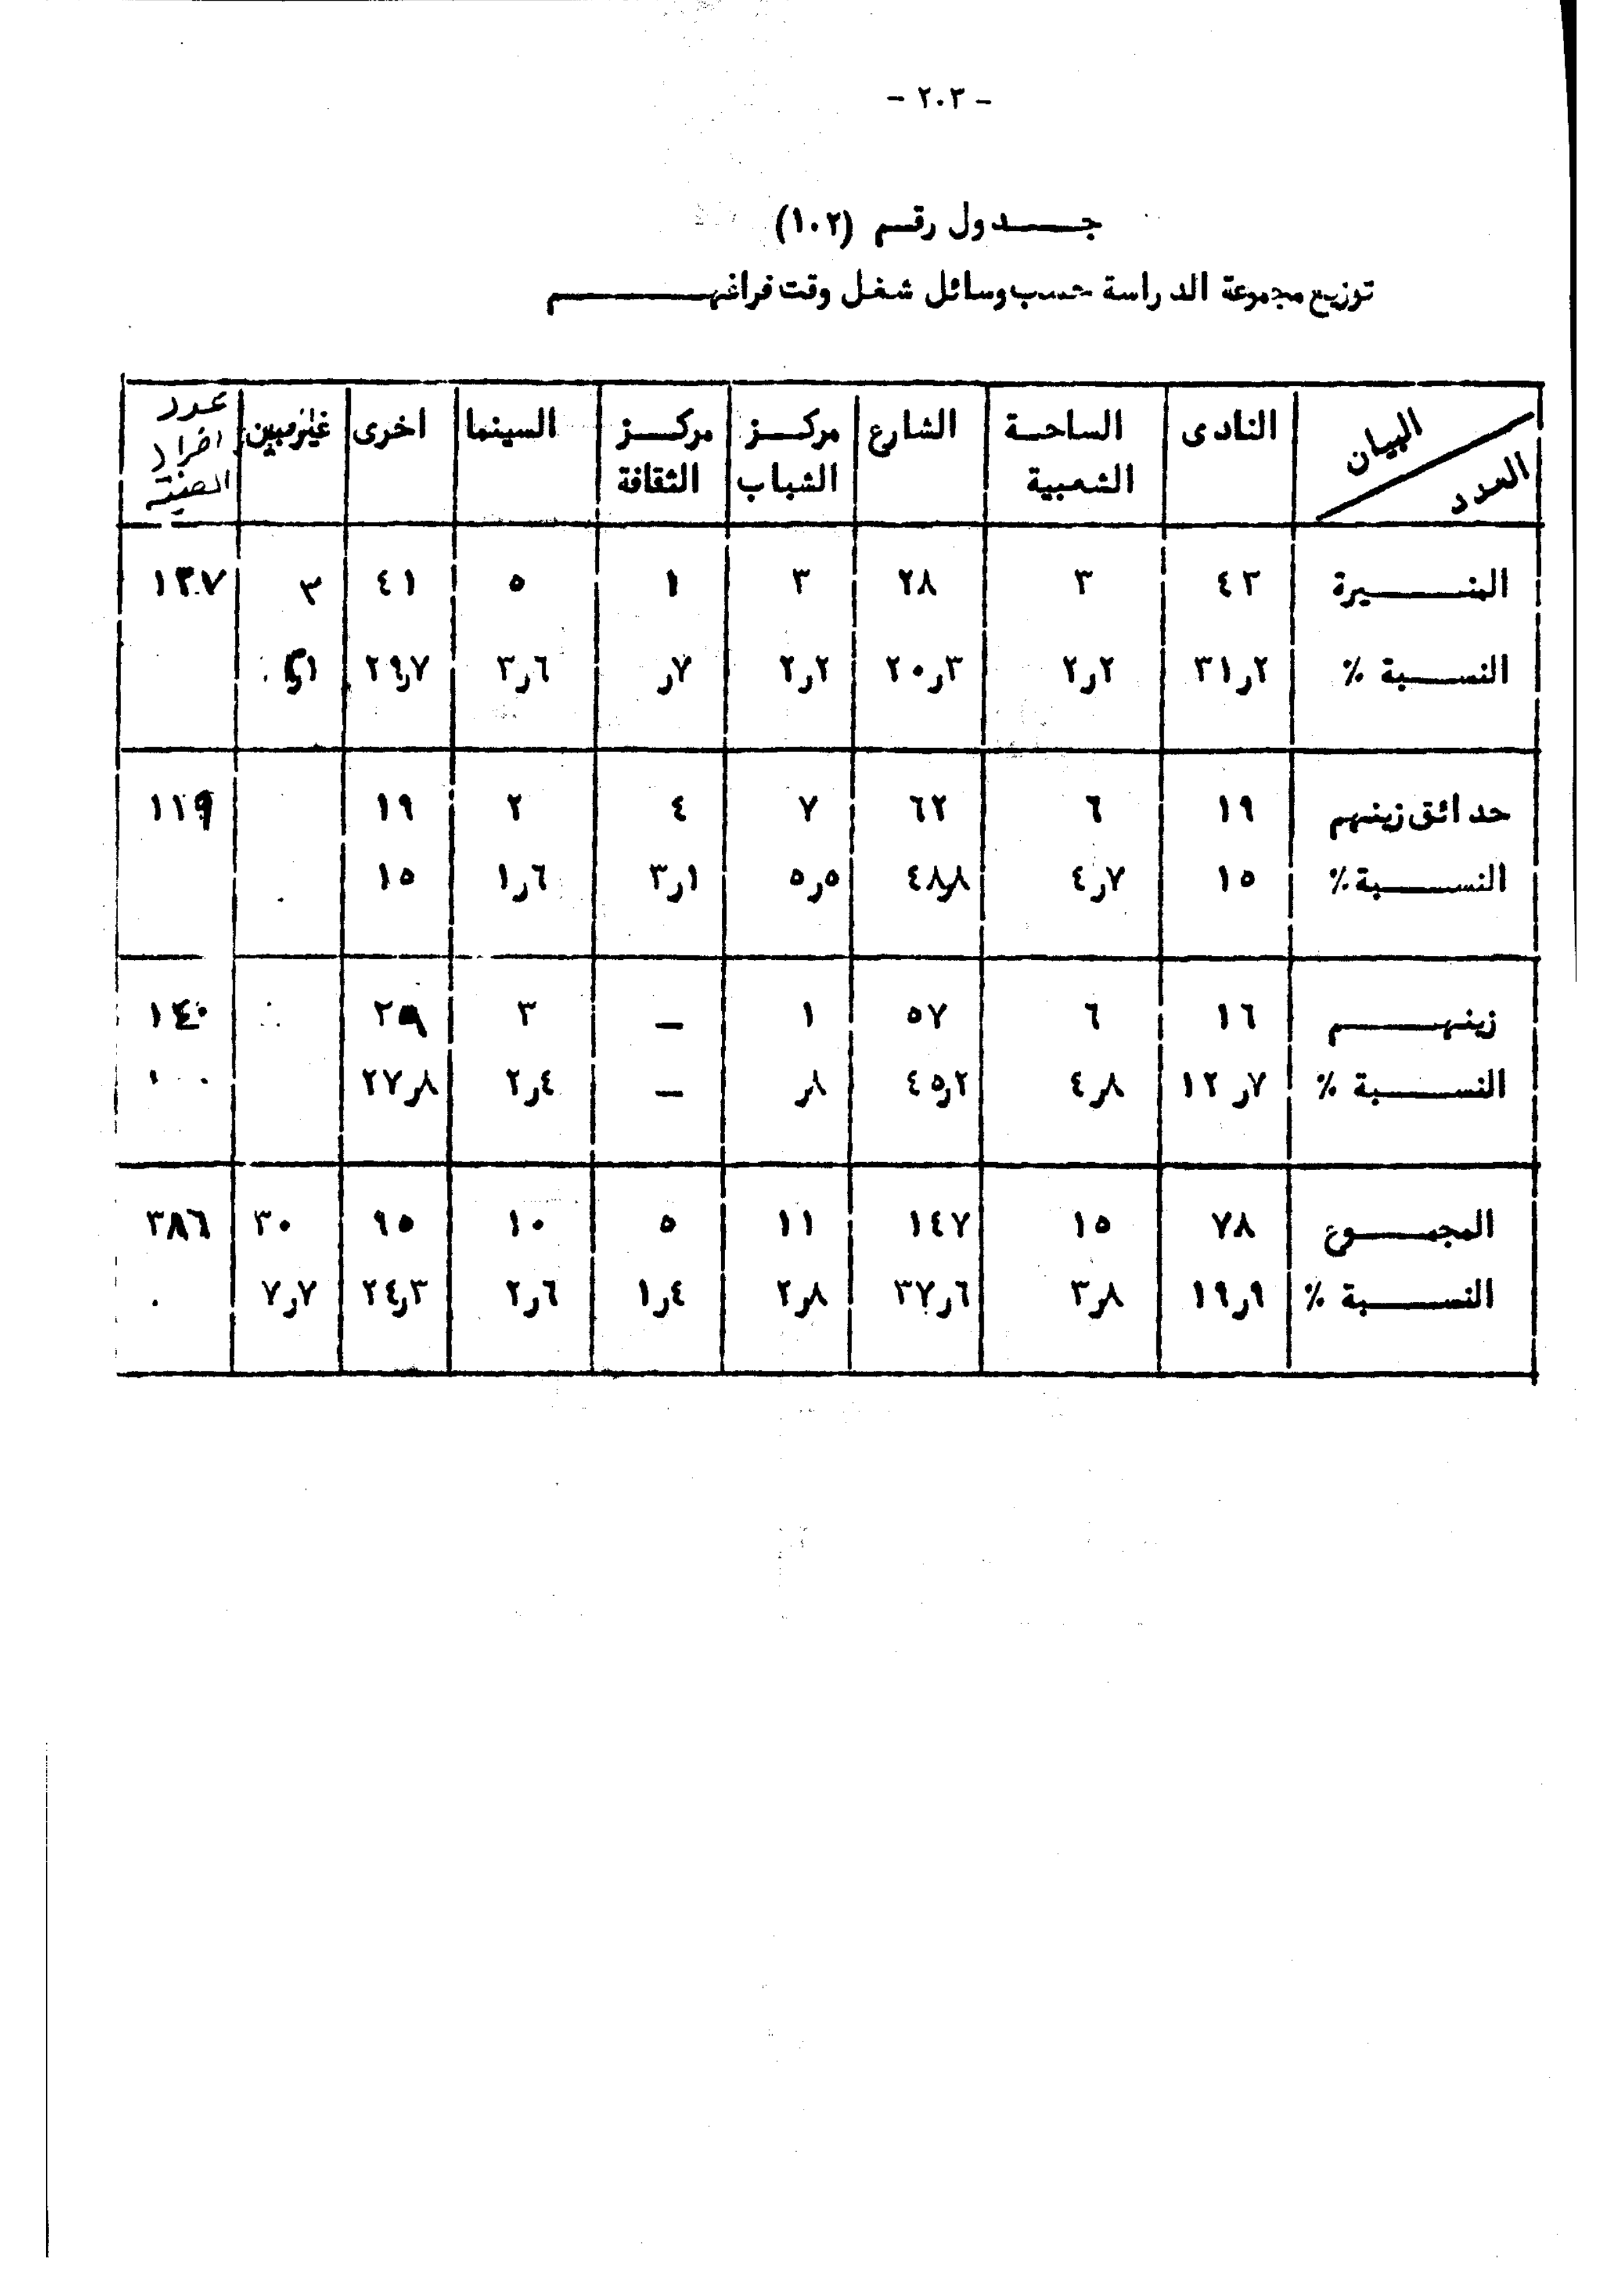 - ٢٠٣ -
جــــدول رقم (١٠٢)
توزيع مجموعة الدراسة حسب وسائل شغل وقت فراغهــــم
البيان / العدد | النادى | الساحة الشعبية | الشارع | مركز الشباب | مركز الثقافة | السينما | اخرى | غير مبين | عدد افراد العينة
المنــــيرة | ٤٣ | ٣ | ٢٨ | ٣ | ١ | ٥ | ٤١ | ٣ | ١٣٧
النســبة % | ٣١٫٢ | ٢٫٢ | ٢٠٫٣ | ٢٫٢ | ٫٧ | ٣٫٦ | ٢٩٫٧
حدائق زينهم | ١٩ | ٦ | ٦٢ | ٧ | ٤ | ٢ | ١٩ | ١١٩
النســبة % | ١٥ | ٤٫٧ | ٤٨٫٨ | ٥٫٥ | ٣٫١ | ١٫٦ | ١٥
زينهــــم | ١٦ | ٦ | ٥٧ | ١ | ـ | ٣ | ١٤٠
النســبة % | ١٢٫٧ | ٤٫٨ | ٤٥٫٢ | ٫٨ | ـ | ٢٫٤ | ٢٧٫٨
المجمــوع | ٧٨ | ١٥ | ١٤٧ | ١١ | ٥ | ١٠ | ٩٥ | ٣٠ | ٣٨٦
النســبة % | ١٩٫٩ | ٣٫٨ | ٣٧٫٦ | ٢٫٨ | ١٫٤ | ٢٫٦ | ٢٤٫٣ | ٧٫٧